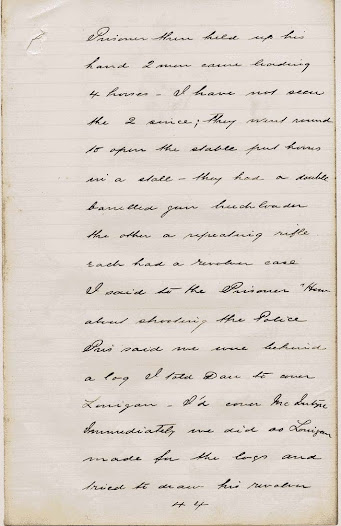 Prisoner then held up his
hand 2 men came leading
4 horses - I have not seen
the 2 since; they went round
to open the stable put horses
in a stall - they had a double
barrelled gun breechloader
the other a repeating rifle
each had a revolver case
I said to the Prisoner "How
about shooting the Police
Pris said we were behind
a log I told Dan to cover
Lonigan - I'd cover McIntyre
Immediately we did as Lonigan
made for the logs and
tried to draw his revolver
44